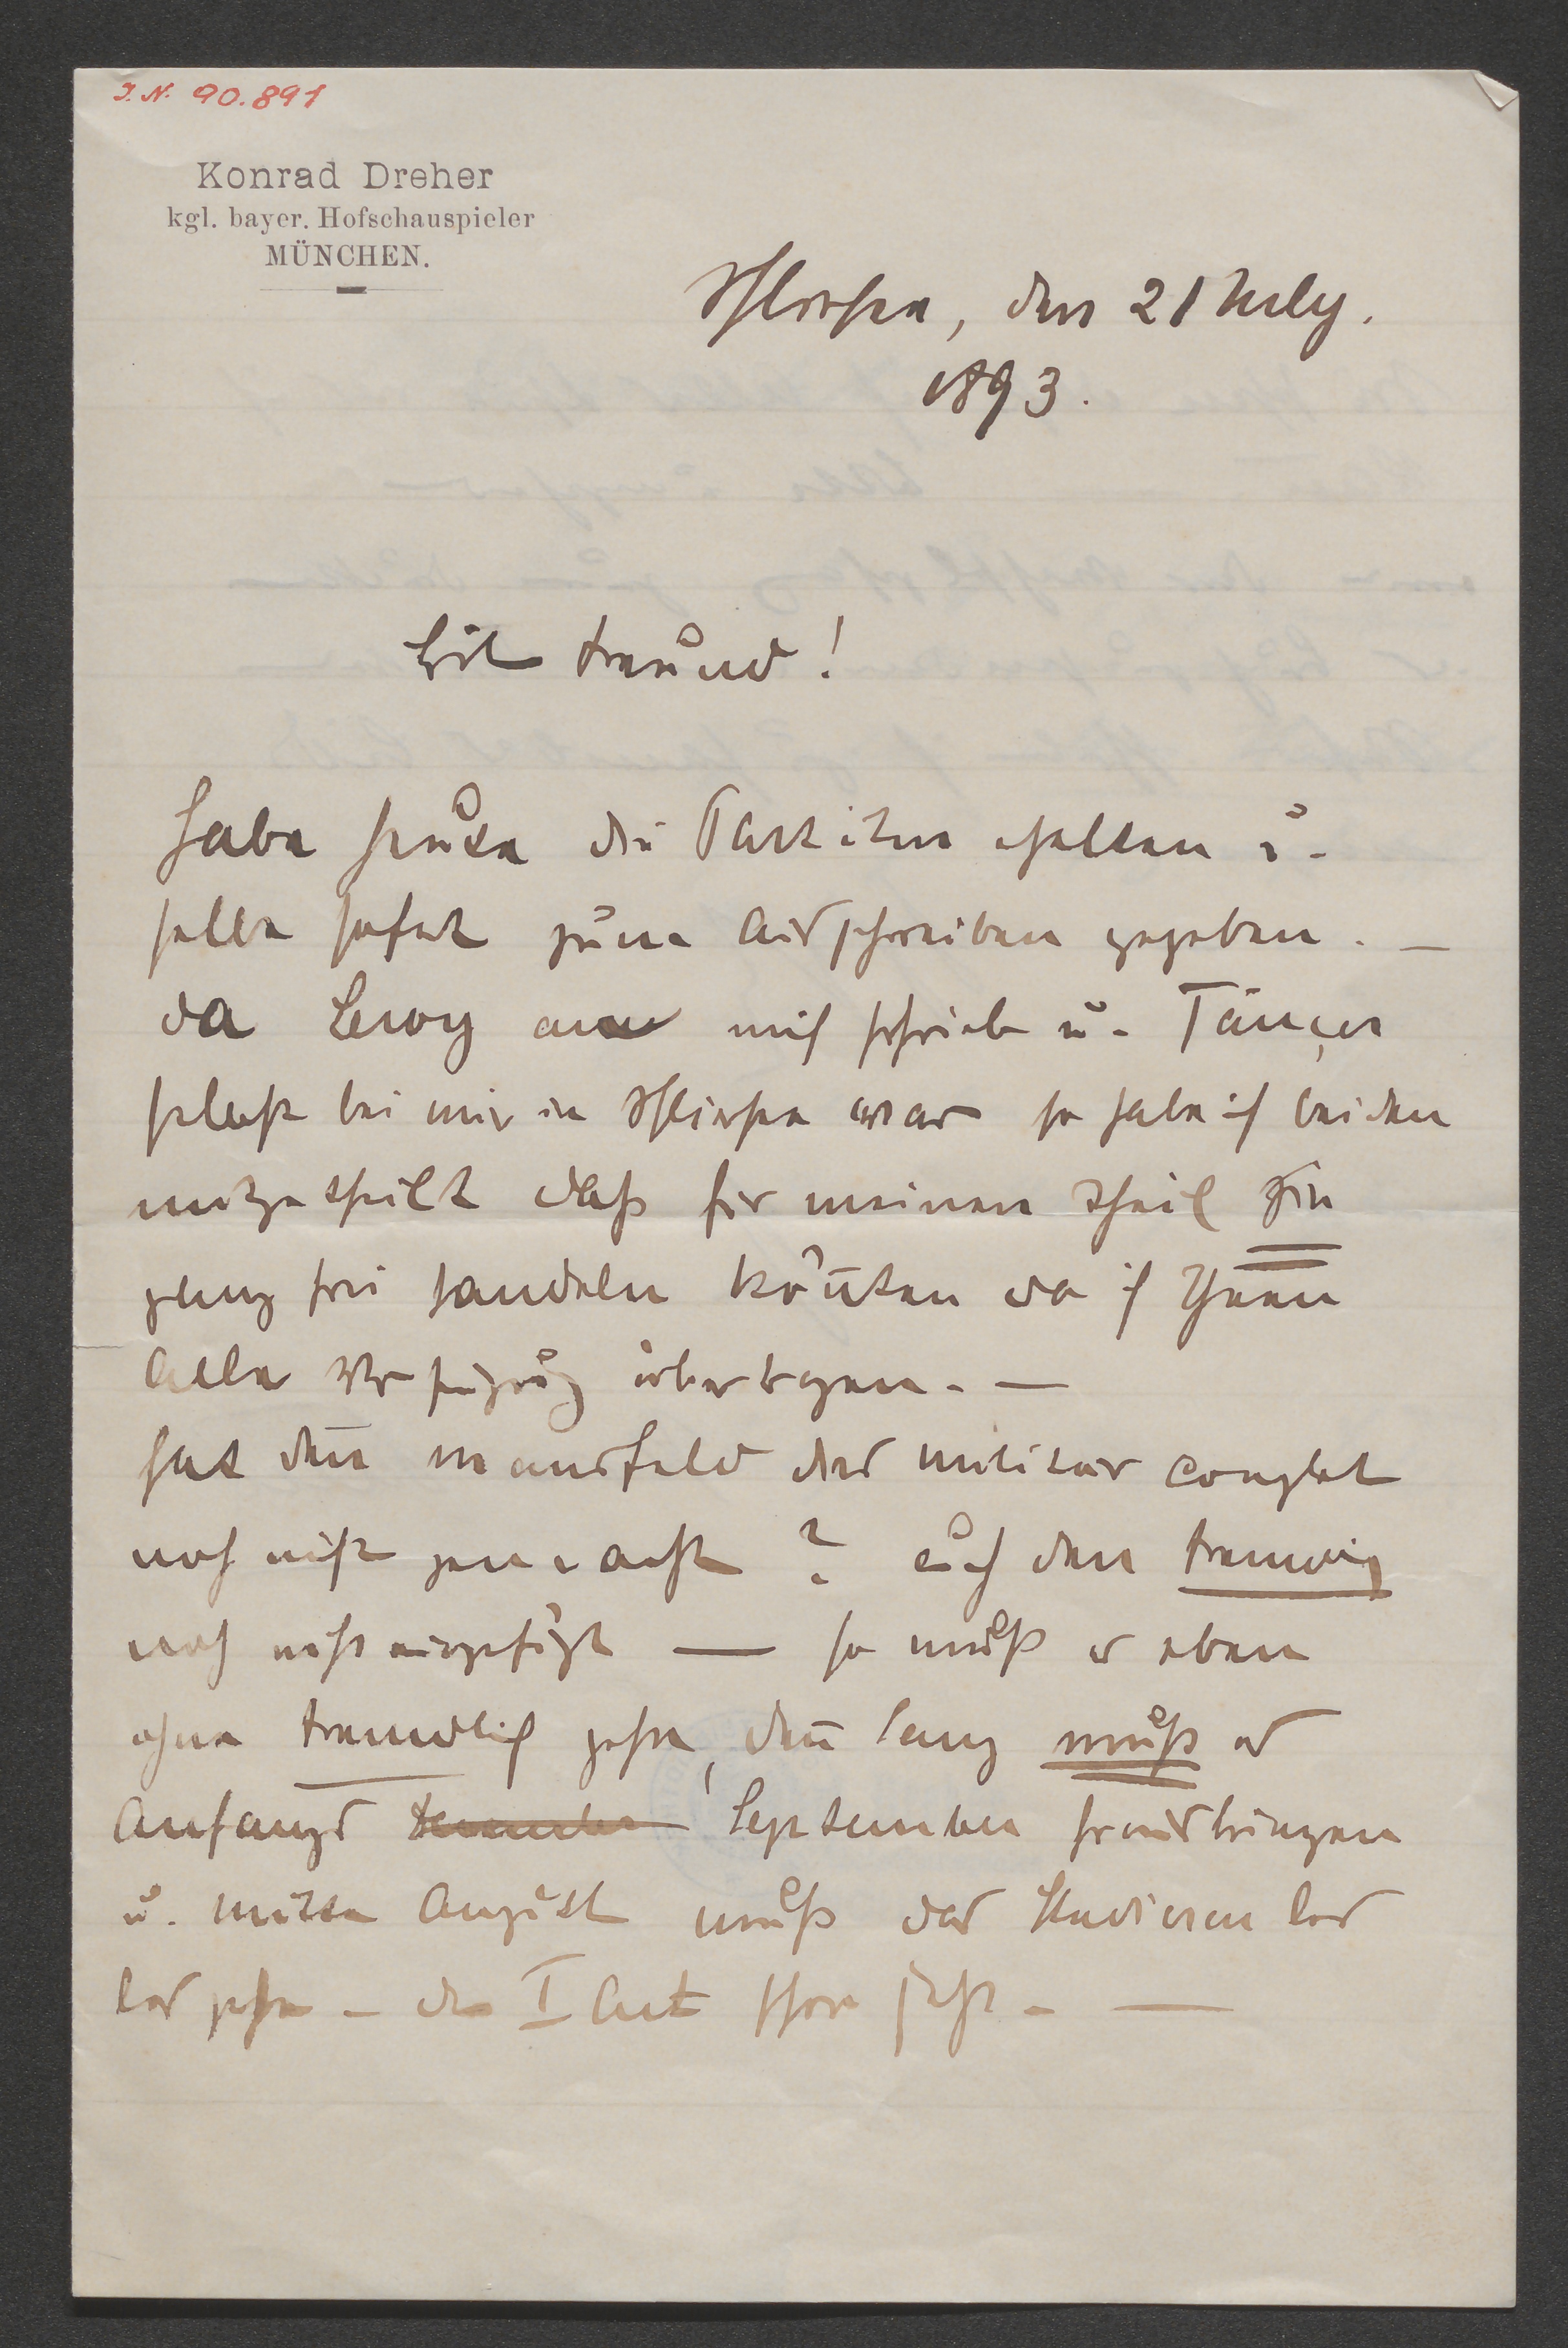 J. N. 90.891
Konrad Dreher
kgl. bayer. Hofschauspieler
MÜNCHEN.
Schliersee, den 21 July.
1893.
Lieb Freund!
Habe heute die Partitur erhalten u.
selbe sofort zum Ausschreiben gegeben. —
Da Lewy an mich schrieb u. Tänzer
selbst bei mir in Schliersee war so habe ich beiden
mitgetheilt daß für meinen Theil Sie
ganz frei handeln könnten da ich Ihnen
alle Verfügung übertragen. —
Hat den Mansfeld das Militär Couplet
noch nicht gemacht? auch den
noch nicht eingefügt — so muß es eben
ohne gehen, den Lanz muß es
Anfangs September herausbringen
u. Mitte August muß das Studieren los
los gehen – der I Act schon jetzt. —